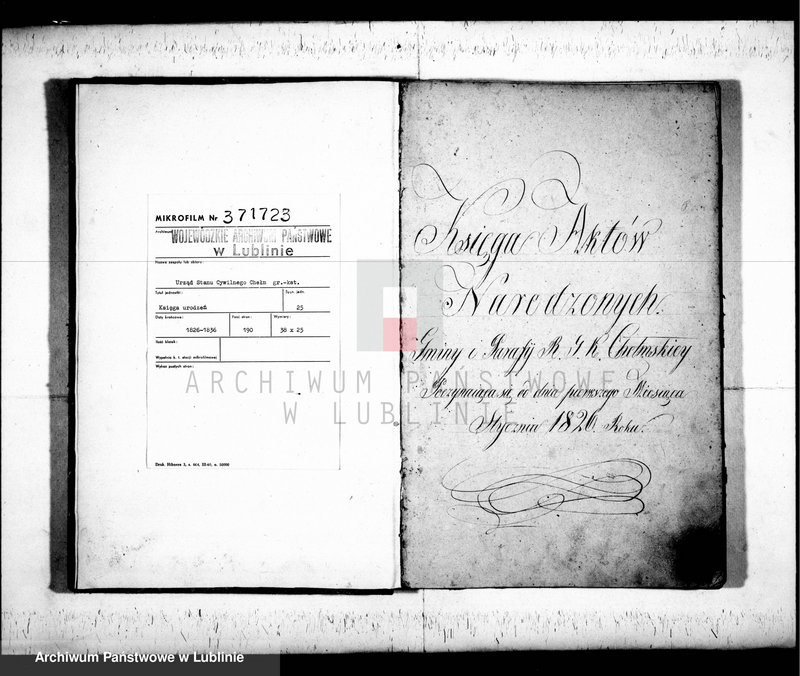 MIKROFILM Nr 371723
Archiwum WOJEWÓDZKIE ARCHIWUM PAŃSTWOWE
w Lublinie
Nazwa zespołu lub zbioru:
Urząd Stanu Cywilnego Chełm gr.-kat.
Tytuł jednostki:
Sygn. jedn.
Księga urodzeń
25
Daty krańcowe:
Ilość stron:
Wymiary:
1826-1836
190
38 x 25
Ilość klatek:
Wypełnia k. t. stacji mikrofilmowej
Wykaz pustych stron:
Księga Aktów
Narodzonych.
Gminy i Parafij R. G. K. Chełmskiey
Poczynaiąca się od dnia pierwszego Miesiąca
Stycznia 1826. Roku.
ARCHIWUM PAŃSTWOWE
W LUBLINIE
Archiwum Państwowe w Lublinie